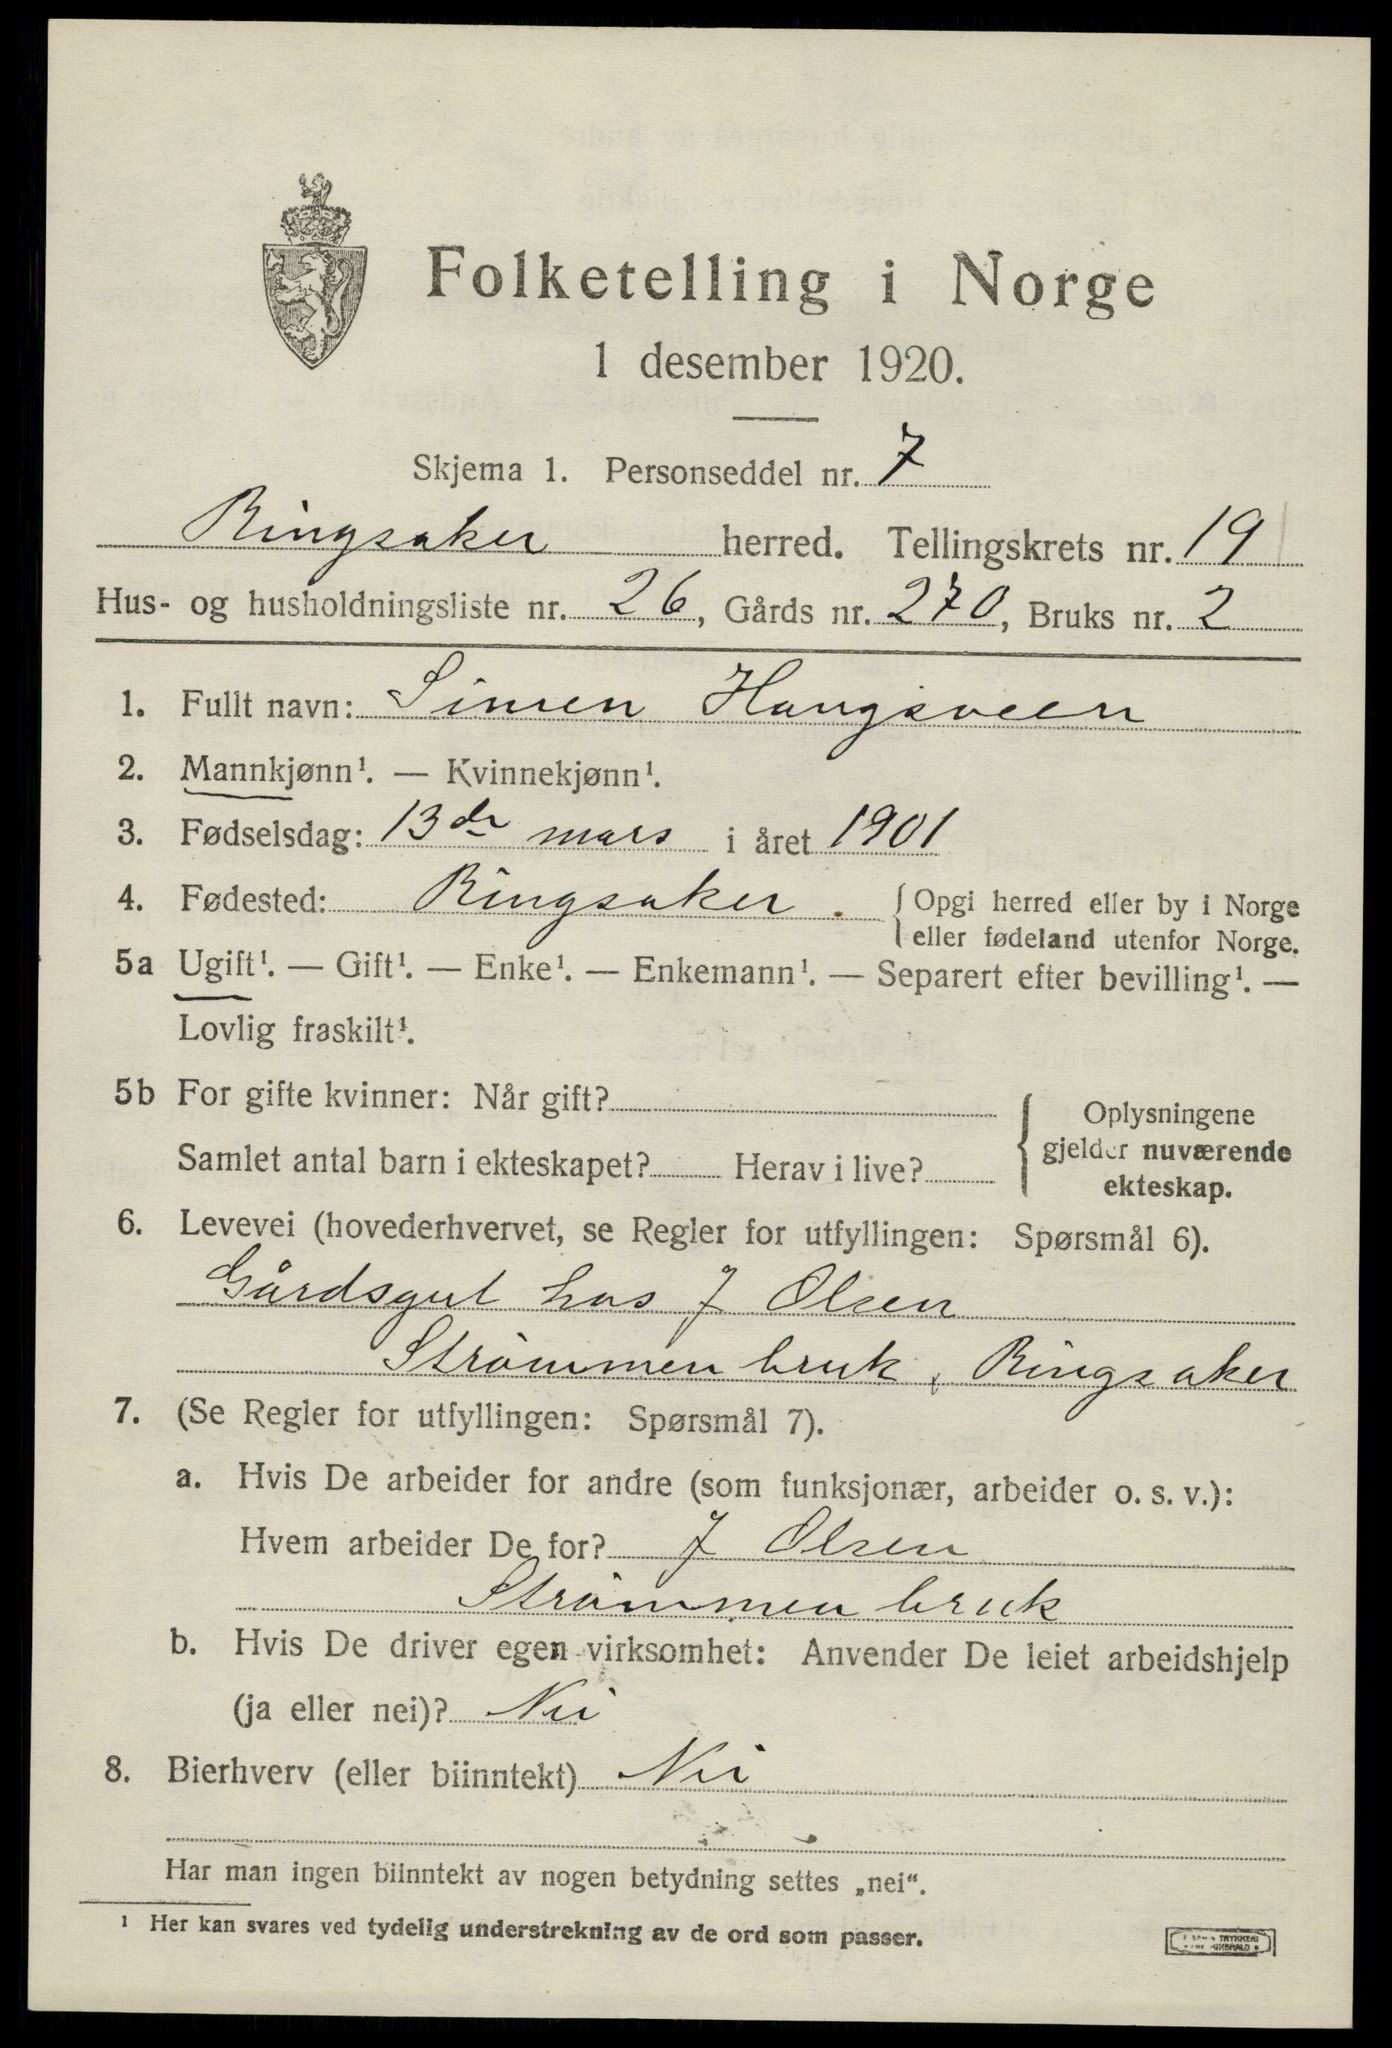 Folketelling i Norge
1 desember 1920.
Skjema 1. Personseddel nr. 7
Ringsaker herred. Tellingskrets nr. 19
Hus- og husholdningsliste nr. 26, Gårds nr. 270, Bruks nr. 2
1. Fullt navn: Simen Haugsveen
2. Mannkjønn¹. — Kvinnekjønn¹.
3. Fødselsdag: 13de mars i året 1901
4. Fødested: Ringsaker. { Opgi herred eller by i Norge
eller fødeland utenfor Norge.
5a Ugift¹. — Gift¹. — Enke¹. — Enkemann¹. — Separert efter bevilling¹. —
Lovlig fraskilt¹.
5b For gifte kvinner: Når gift?
Samlet antal barn i ekteskapet? Herav i live?
{ Oplysningene
gjelder nuværende
ekteskap.
6. Levevei (hovederhvervet, se Regler for utfyllingen: Spørsmål 6).
Gårdsgut hos J Olsen
Strömmen bruk, Ringsaker
7. (Se Regler for utfyllingen: Spørsmål 7).
a. Hvis De arbeider for andre (som funksjonær, arbeider o. s. v.):
Hvem arbeider De for? J Olsen
Strömmen bruk
b. Hvis De driver egen virksomhet: Anvender De leiet arbeidshjelp
(ja eller nei)? Nei
8. Bierhverv (eller biinntekt) Nei
Har man ingen biinntekt av nogen betydning settes „nei“.
¹ Her kan svares ved tydelig understrekning av de ord som passer.
TRYKKERI